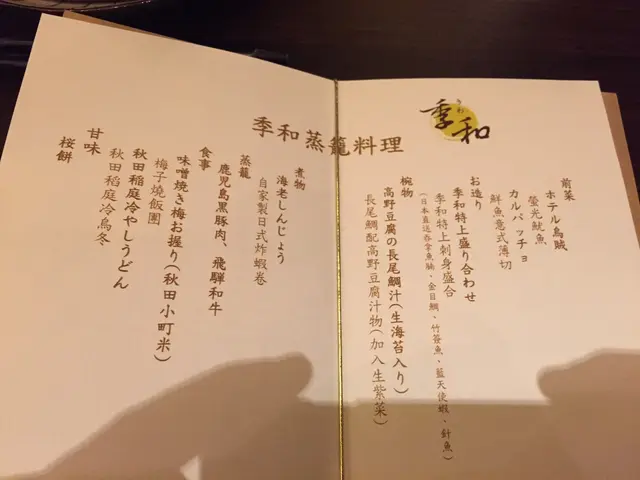 季和
季和蒸籠料理
前菜
ホテル烏賊
螢光魷魚
カルパッチョ
鮮魚意式薄切
お造り
季和特上盛り合わせ
季和特上刺身盛合
(日本直送吞拿魚腩、金目鯛、竹筴魚、藍天使蝦、針魚)
椀物
高野豆腐の長尾鯛汁(生海苔入り)
長尾鯛配高野豆腐汁物(加入生紫菜)
煮物
海老しんじょう
自家製日式炸蝦卷
蒸籠
鹿児島黒豚肉、飛騨和牛
食事
味噌焼き梅お握り(秋田小町米)
梅子燒飯團
秋田稲庭冷やしうどん
秋田稻庭冷烏冬
甘味
桜餅